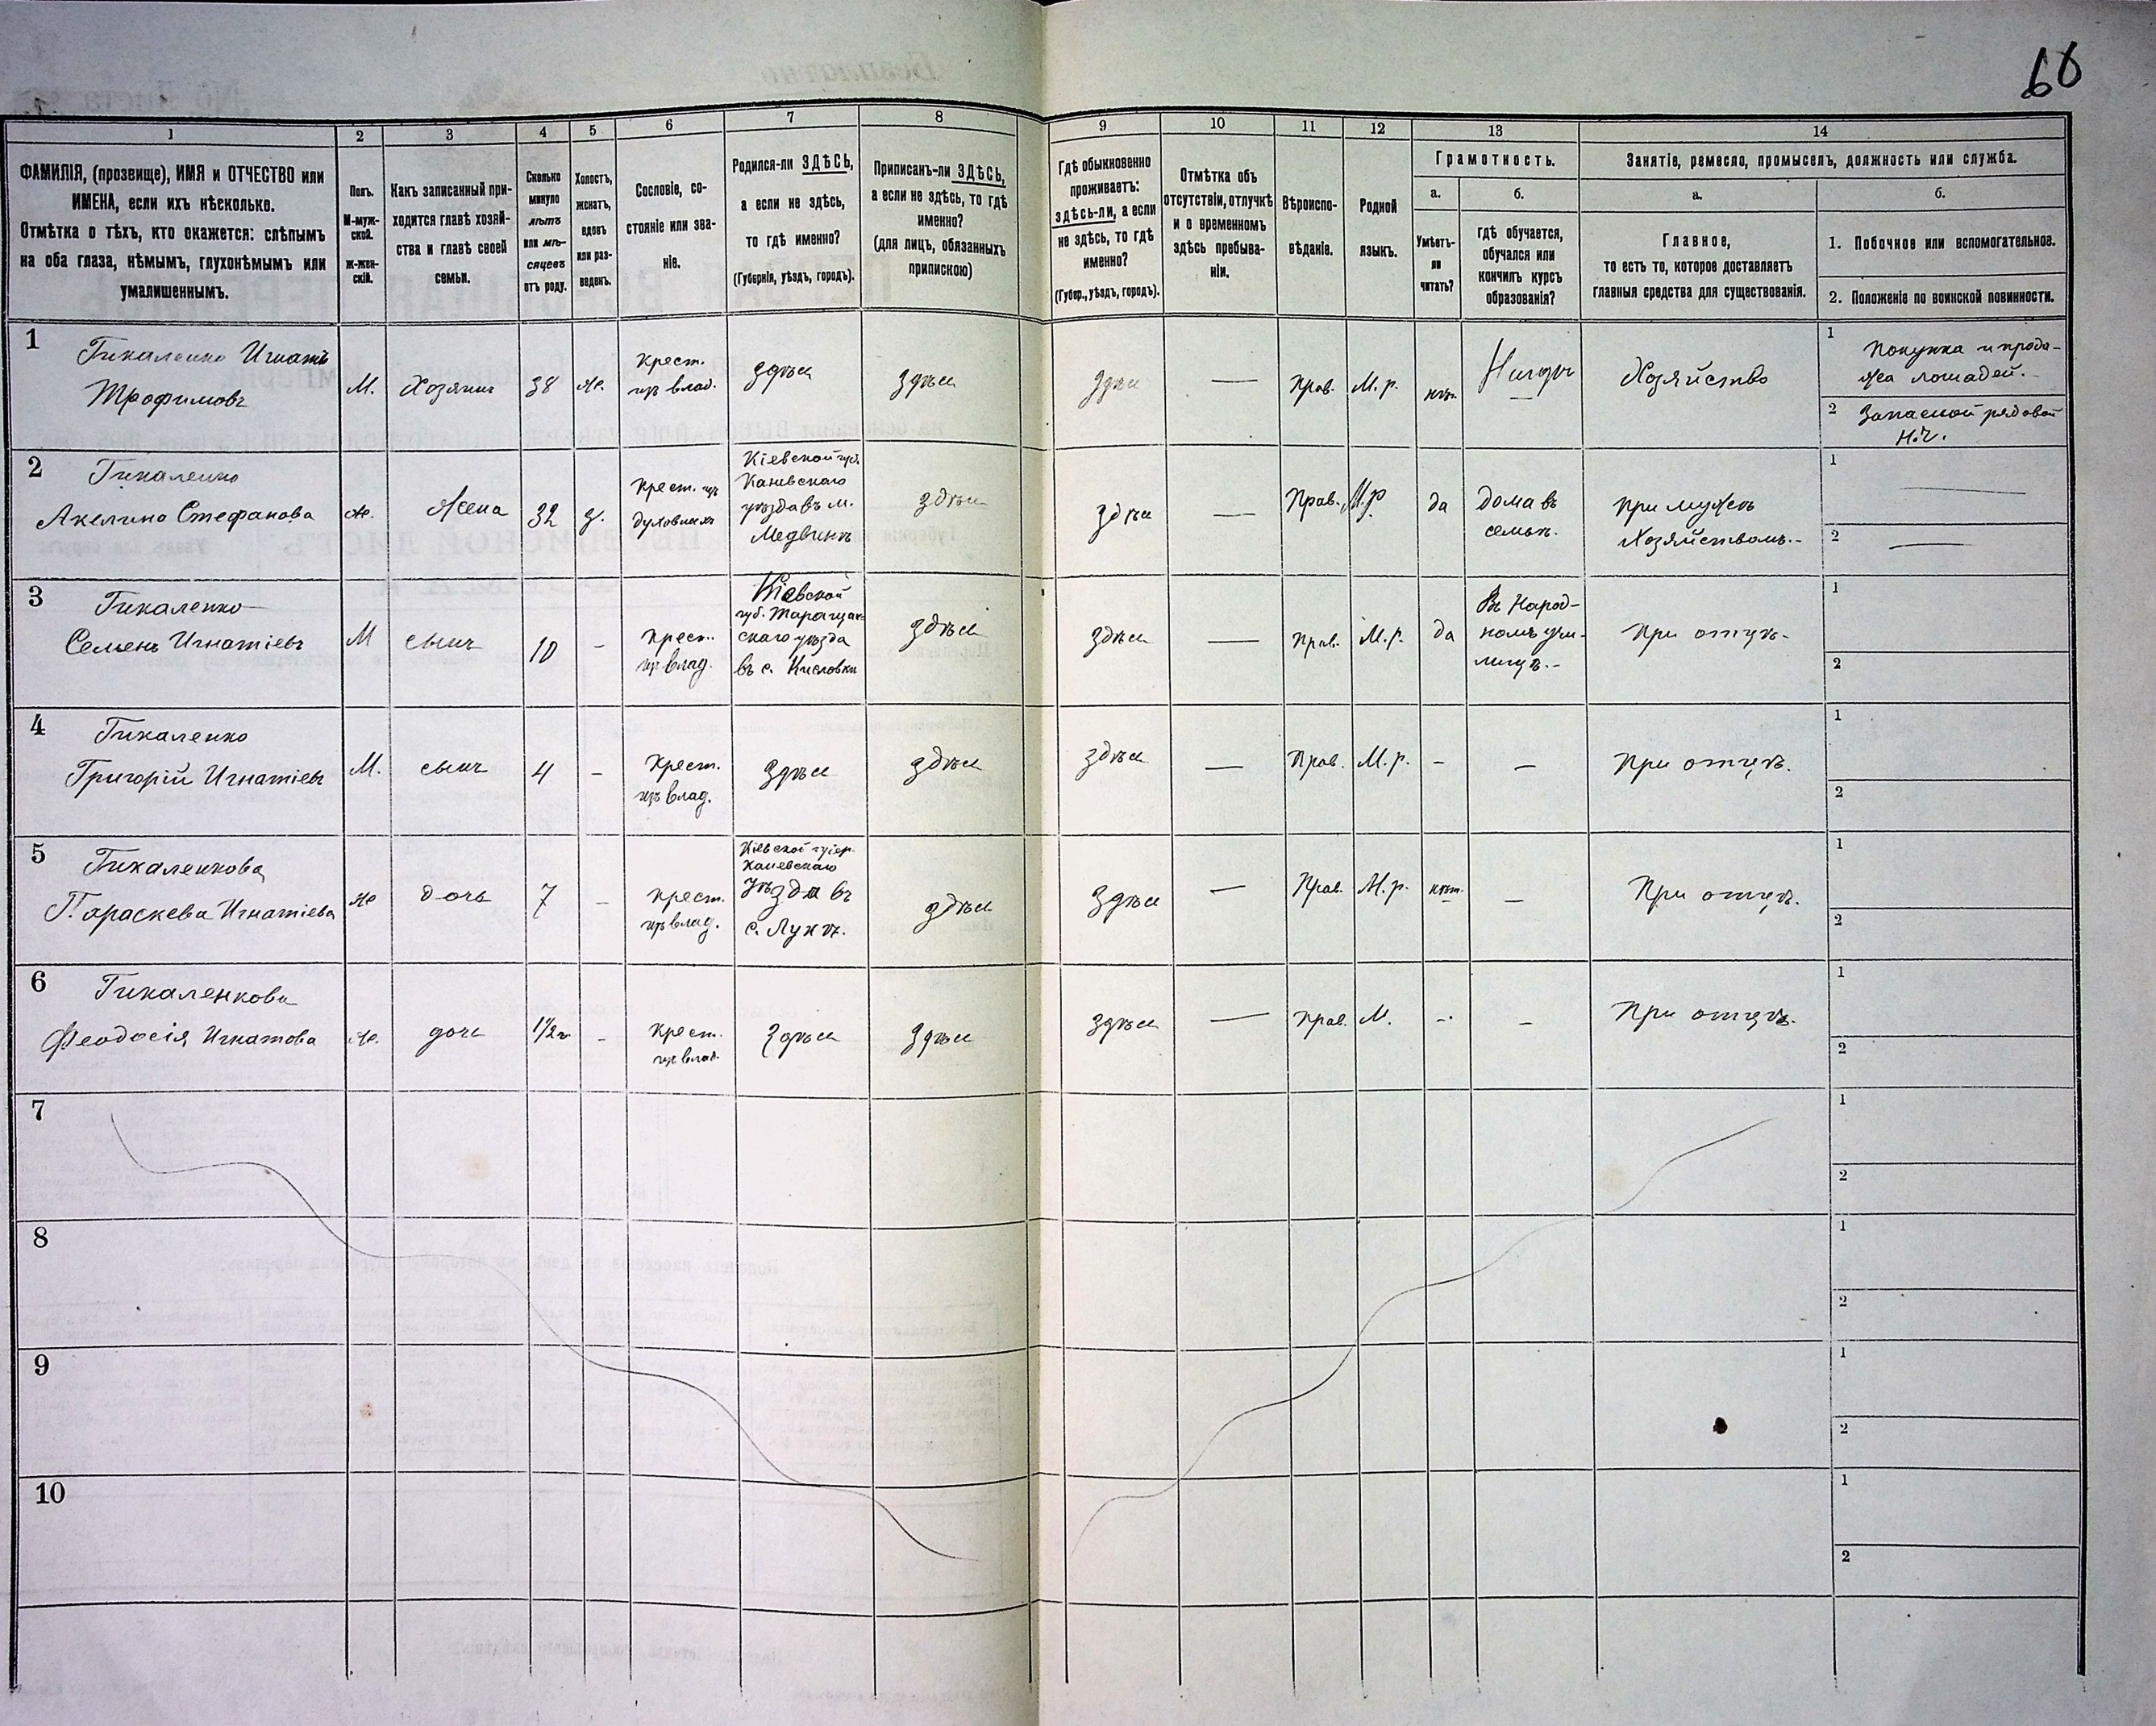 66
1
2
3
4
5
6
7
8
9
10
11
12
13
14
ФАМИЛІЯ, (прозвище), ИМЯ и ОТЧЕСТВО или
ИМЕНА, если ихъ нѣсколько.
Отмѣтка о тѣхъ, кто окажется: слѣпымъ
на оба глаза, нѣмымъ, глухонѣмымъ или
умалишеннымъ.
Полъ.
М-муж-
ской.
Ж-жен-
скій.
Какъ записанный при-
ходится главѣ хозяй-
ства и главѣ своей
семьи.
Сколько
минуло
лѣтъ
или мѣ-
сяцевъ
отъ роду.
Холостъ,
женатъ,
вдовъ
или раз-
веденъ.
Сословіе, со-
стояніе или зва-
ніе.
Родился-ли ЗДѢСЬ,
а если не здѣсь,
то гдѣ именно?
(Губернія, уѣздъ, городъ).
Приписанъ-ли ЗДѢСЬ,
а если не здѣсь, то гдѣ
именно?
(для лицъ, обязанныхъ
припискою)
Гдѣ обыкновенно
проживаетъ:
здѣсь-ли, а если
не здѣсь, то гдѣ
именно?
(Губер., уѣздъ, городъ).
Отмѣтка объ
отсутствіи, отлучкѣ
и о временномъ
здѣсь пребыва-
ніи.
Вѣроиспо-
вѣданіе.
Родной
языкъ.
Грамотность.
а.
б.
Умѣетъ-
ли
читать?
гдѣ обучается,
обучался или
кончилъ курсъ
образованія?
Занятіе, ремесло, промыселъ, должность или служба.
а.
б.
Главное,
то есть то, которое доставляетъ
главныя средства для существованія.
1. Побочное или вспомогательное.
2. Положеніе по воинской повинности.
1
Гикаленко Игнатъ
Трофимовъ
М.
Хозяинъ
38
Ж.
Крест.
изъ влад.
здѣсь
здѣсь
здѣсь
—
Прав.
М. р.
нѣт.
Хозяйство
1
Покупка и прода-
жа лошадей.
2
Запасной рядовой
2
Гикаленко
Акелина Стефанова
Ж.
Жена
32
з.
Крест. изъ
духовныхъ
Кіевской губ.
Каневскаго
уѣзда въ м.
Медвинѣ
здѣсь
здѣсь
—
Прав.
М.р
да
дома въ
семьѣ.
при мужѣ
Хозяйствомъ.-
1
—
2
—
3
Гикаленко
Семенъ Игнатіевъ
М
сынъ
10
-
Крест.
изъ влад.
Кіевской
губ. Таращан-
скаго уѣзда
въ с. Кисловки
здѣсь
здѣсь
—
Прав.
М.р.
да
Въ Народ-
номъ учи-
лищѣ.-
При отцѣ-
1
2
4
Гикаленко
Григорій Игнатіевъ
М.
сынъ
4
-
Крест.
изъ влад.
здѣсь
здѣсь
здѣсь
—
Прав.
М.р.
-
-
При отцѣ.
1
2
5
Гикаленкова
Параскева Игнатіева
Ж
дочь
7
-
Крест.
изъ влад.
Кіевской губер.
Каневскаго
Уѣзда въ
с. Лукѣ.
здѣсь
здѣсь
—
Прав.
М.р.
нѣт.
-
При отцѣ.
1
2
6
Гикаленкова
Феодосія Игнатова
Ж.
дочь
1½г.
-
Крест.
изъ влад.
здѣсь
здѣсь
здѣсь
—
Прав.
М.
-.
-
При отцѣ.
1
2
7
1
2
8
1
2
9
1
2
10
1
2